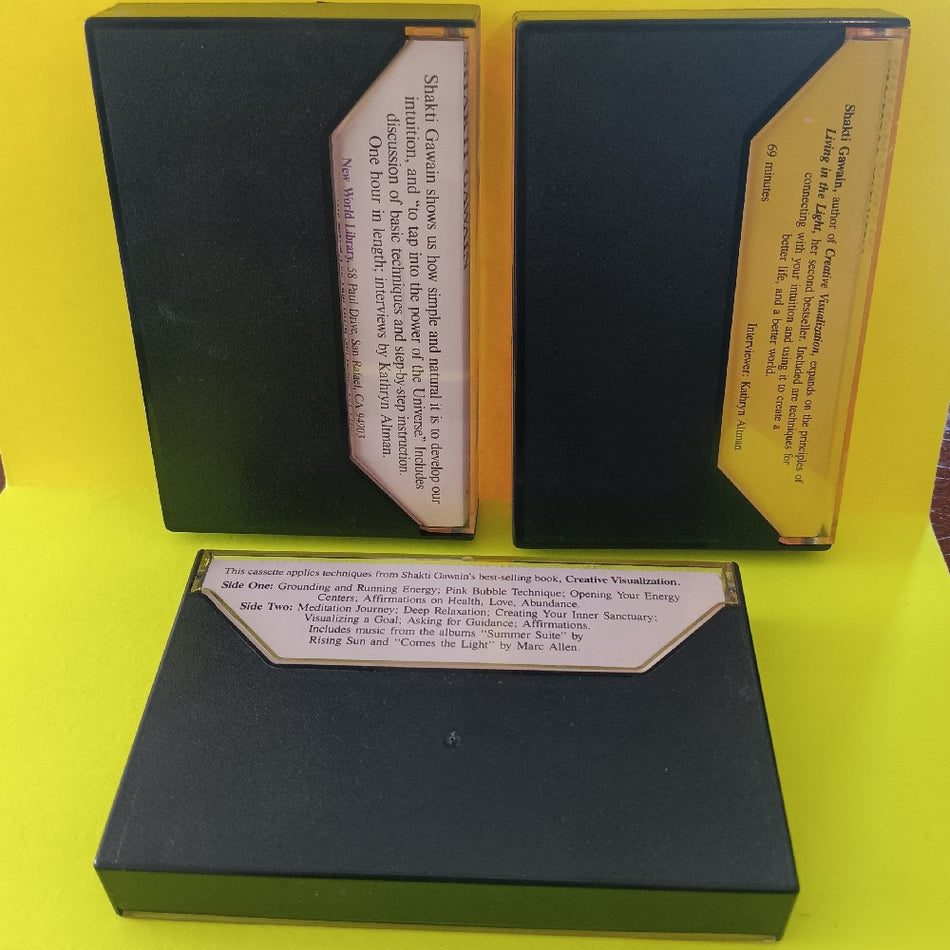 Shakti Gawain shows us how simple and natural it is to develop our
intuition, and “to tap into the power of the Universe.” Includes
discussion of basic techniques and step-by-step instruction.
One hour in length; interviews by Kathryn Altman.
New World Library, 58 Paul Drive, San Rafael, CA 94903
SHAKTI GAWAIN
Shakti Gawain, author of Creative Visualization, expands on the principles of
Living in the Light, her second bestseller. Included are techniques for
connecting with your intuition and using it to create a
better life, and a better world.
69 minutes Interviewer: Kathryn Altman
This cassette applies techniques from Shakti Gawain's best-selling book, Creative Visualization.
Side One: Grounding and Running Energy; Pink Bubble Technique; Opening Your Energy
Centers; Affirmations on Health, Love, Abundance.
Side Two: Meditation Journey; Deep Relaxation; Creating Your Inner Sanctuary;
Visualizing a Goal; Asking for Guidance; Affirmations.
Includes music from the albums “Summer Suite” by
Rising Sun and “Comes the Light” by Marc Allen.